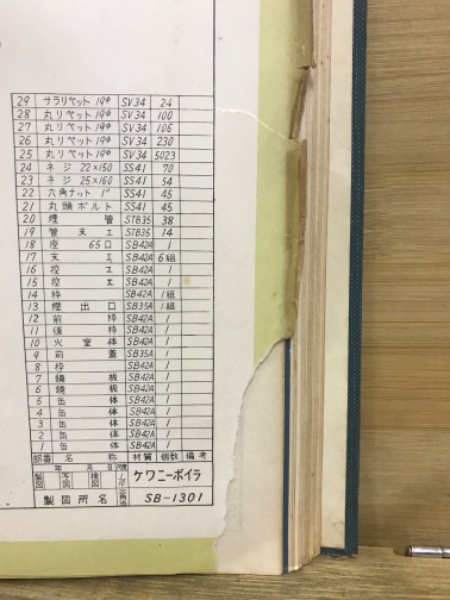 29 サラリベット 19φ SV34 24
28 丸リベット 19φ SV34 100
27 丸リベット 19φ SV34 106
26 丸リベット 19φ SV34 230
25 丸リベット 19φ SV34 5023
24 ネジ 22×150 SS41 70
23 ネジ 25×160 SS41 54
22 六角ナット 1" SS41 45
21 丸頭ボルト SS41 45
20 煙管 STB35 38
19 管支エ STB35 14
18 座 65口 SB42A 1
17 支エ SB42A 6組
16 控エ SB42A 1
15 控エ SB42A 1
14 枠 SB42A 1組
13 煙出口 SB35A 1組
12 前枠 SB42A 1
11 後枠 SB42A 1
10 火室体 SB42A 1
9 前蓋 SB35A 1
8 枠 SB42A 1
7 鏡板 SB42A 1
6 鏡板 SB42A 1
5 缶体 SB42A 1
4 缶体 SB42A 1
3 缶体 SB42A 1
2 缶体 SB42A 1
1 缶体 SB42A 1
部番 名称 材質 個数 備考
年月日
製図 写図 検図 ケワニーボイラ
製図所名 SB-1301